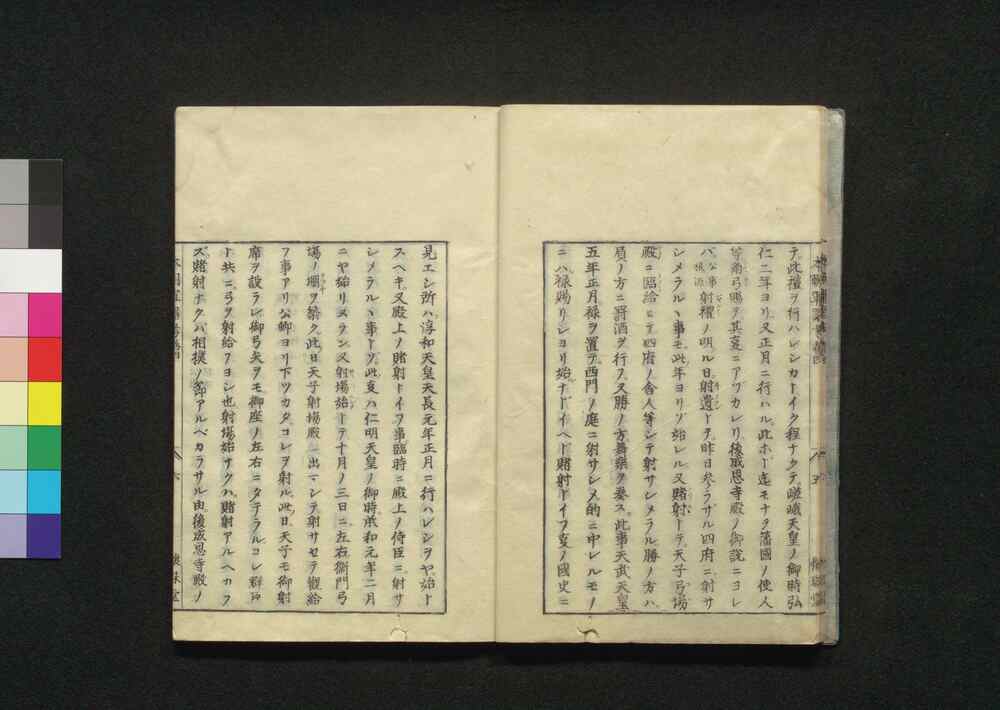 テ此禮ヲ行ハレシカトイク程ナクテ嵯峨天皇ノ御時弘
仁二年ヨリ又正月ニ行ハル此ホト迄モナヲ藩國ノ使人
弓賜ヲ其ニアツカレリ後成恩寺殿ノ御説ニヨレ
バ公事根源射禮ノ明ル日射遺トテ昨日参ラサル四府ニ射サ
シメラルヽ事モ此年ヨリソ始レル又賭射トテ天子弓場
殿ニ臨給ヒテ四府ノ舎人等シテ射サシメラル勝ノ方ハ
負ノ方ニ罸酒ヲ行フ又勝ノ方舞樂ヲ奏ス此事天武天皇
五年正月禄ヲ置テ西門ノ庭ニ射サシメ的ニ中レルモノ
ニハ禄賜リシヨリ始ナトイヘト賭射トイフ夏ノ國史ニ
見エシ所ハ淳和天皇天長元年正月ニ行ハレシヲヤ始ト
スヘキ又殿上ノ賭射トイフ事臨時ニ殿上ノ侍臣ニ射サ
シメラルヽ事トソ此夏ハ仁明天皇ノ御時承和元年二月
ニヤ始リヌラン又射場始トテ十月ノ三日ニ左右衛門弓
場ノ堋ヲ築ク此日天子射場殿ニ出マシテ射サセテ観給
フ事アリ公卿ヨリ下ツカタコレヲ射ル此日天子モ御射
席ヲ設ラレ御弓矢ヲモ御座ノ左右ニタテラルコレ群臣
ト共ニ弓ヲ射給フヨシ也射場始ナクハ賭射アルヘカラ
ズ賭射ナクハ相撲ノ節アルベカラサル由後成恩寺殿ノ